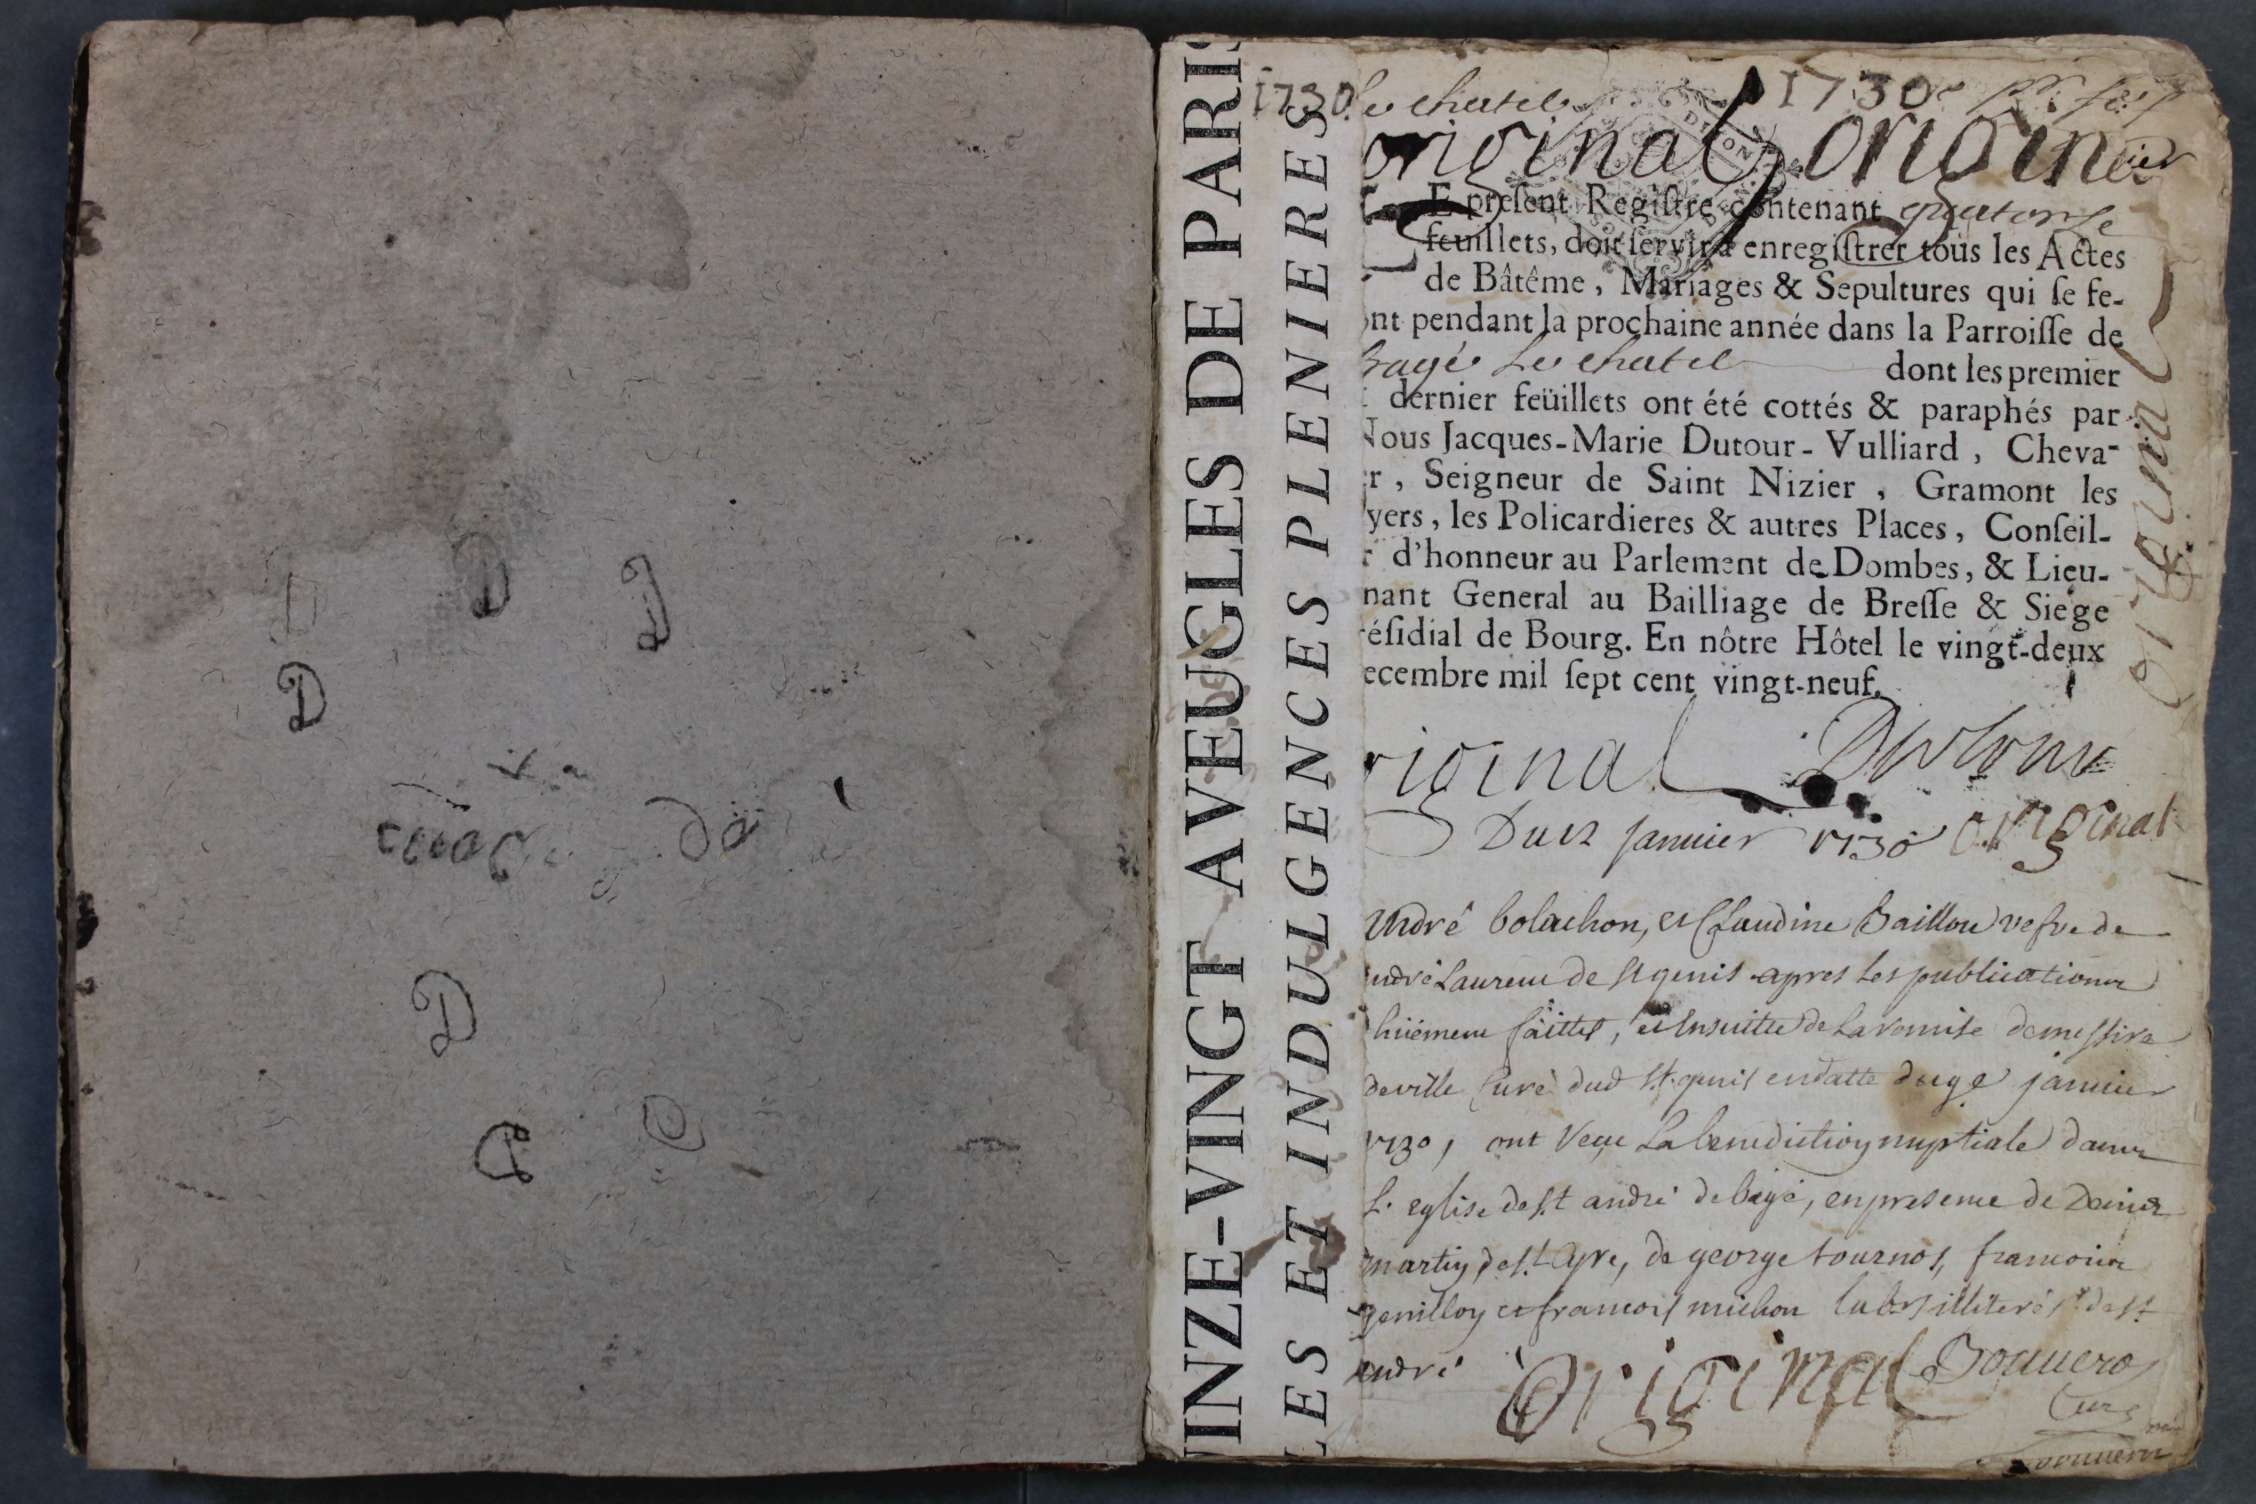 D D D
D
D
INZE-VINGT AVEUGLES DE PARI
LES ET INDULGENCES PLENIERES
1730. Le chatel 1730
original origin
E preſent Regiſtre contenant quatorse
feuillets, doit ſervir à enregiſtrer tous les Actes
de Bâtême, Mariages & Sepultures qui ſe fe-
ont pendant la prochaine année dans la Parroiſſe de
Bagé Le chatel dont les premier
dernier feüillets ont été cottés & paraphés par
Nous Jacques-Marie Dutour-Vulliard, Cheva-
r, Seigneur de Saint Nizier, Gramont les
yers, les Policardieres & autres Places, Conſeil-
r d'honneur au Parlement de Dombes, & Lieu-
nant General au Bailliage de Breſſe & Siege
réſidial de Bourg. En nôtre Hôtel le vingt-deux
ecembre mil ſept cent vingt-neuf.
original
riginal Dutour
Du 12 janvier 1730 original
André bolachon, et Claudine Baillon vefve de
ndré Laurent de st genis apres les publications
huement faittes, et ensuitte de la remise de messire
deville Curé dud st genis en datte du 9e janvier
1730, ont reçu La benediction nuptiale dans
L'eglise de st andré de bagé, en presence de Denis
martin de st Cyre, de george tournos, francois
genillon et francois michon labrs illiterés de st
andré
original Bouuero
Curé